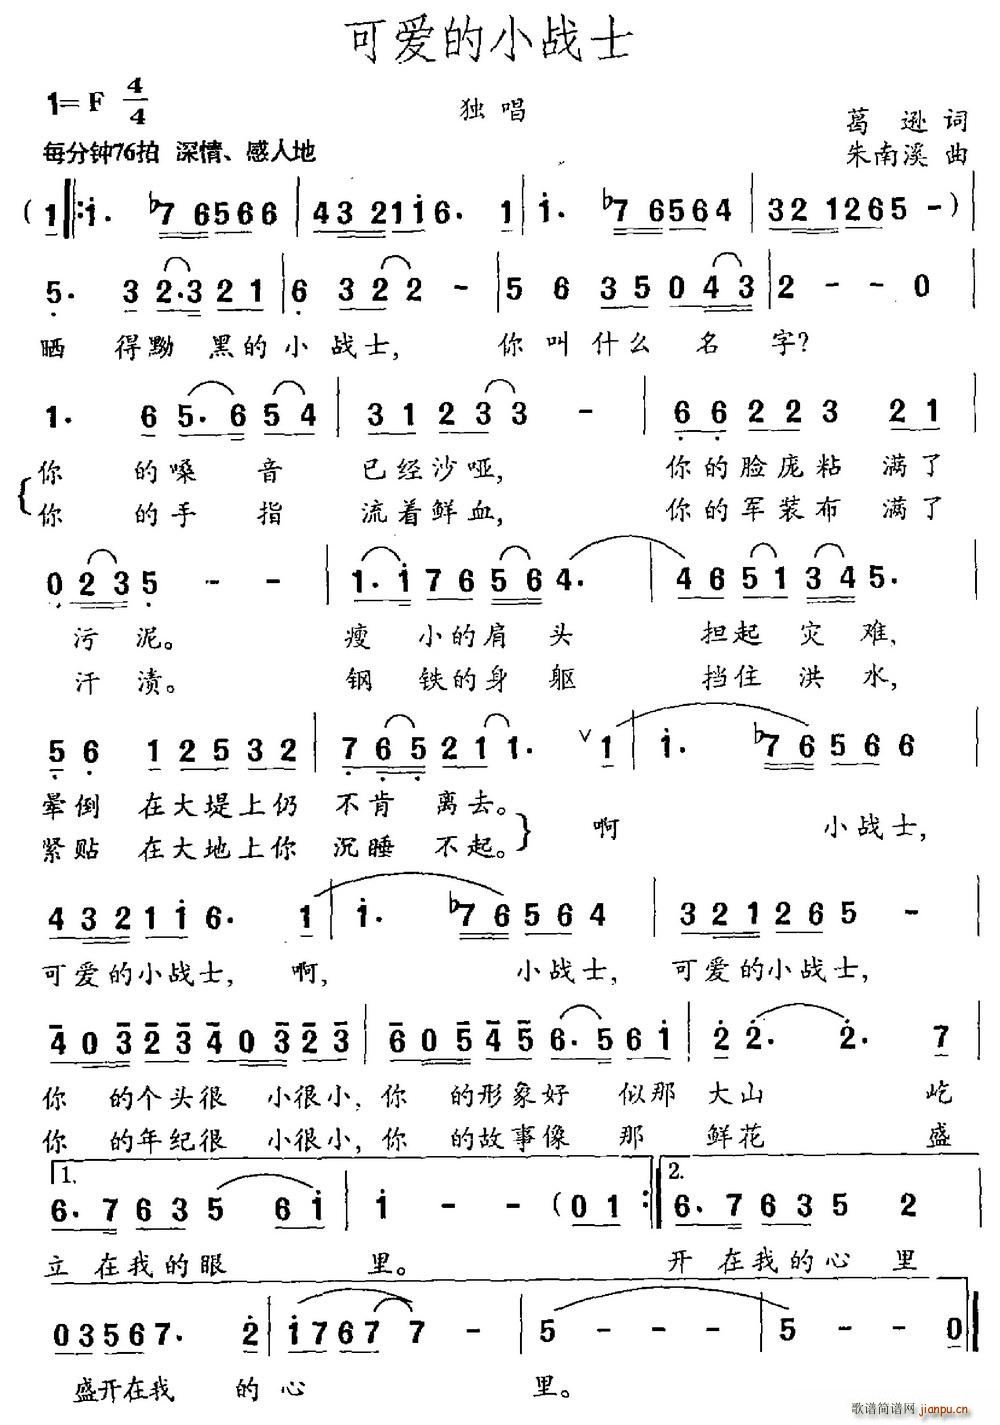 可爱的小战士
1=F 4/4
独唱
葛逊 词
每分钟76拍 深情、感人地
朱南溪 曲
(1 ‖: 1̇. ♭7 6566 | 432 11̇6. 1 | 1̇. ♭7 6564 | 32 1 265 -) |
5. 3 2.3 21 | 6 322 - | 5 6 35 043 | 2 - - 0 |
晒 得黝 黑的小 战士, 你叫什么 名 字?
1. 6 5.6 54 | 31 23 3 - | 66 22 3 21 |
你 的嗓 音 已经沙哑, 你的脸庞粘 满了
你 的手 指 流着鲜血, 你的军装布 满了
023 5 - - | 1.1̇ 76 564. | 46 51 345. |
污 泥。 瘦 小的肩 头 担起 灾 难,
汗 渍。 钢 铁的身 躯 挡住 洪 水,
56 12 53 2 | 765 21 1. ∨ 1 | 1̇. ♭76 56 6 |
晕倒 在大堤上仍 不肯 离去。
紧贴 在大地上你 沉睡 不起。 啊 小战士,
432 11̇ 6. 1 | 1̇. ♭76 56 4 | 321 26 5 - |
可爱的小战士, 啊, 小战士, 可爱的小战士,
4 03 23 4 03 23 | 6 05 45 6.5 61̇ | 2̇ 2̇. 2̇. 7 |
你 的个头很 小很小, 你 的形象好 似那 大山 屹
你 的年纪很 小很小, 你 的故事像 那 鲜花 盛
1.
2.
6.7 63 5 61̇ | 1̇ - - (01 :‖ 6.7 63 5 2 |
立 在我的眼 里。 开 在我的心 里
03567. 2̇ | 1̇7 67 7 - | 5 - - - | 5 - - 0 ‖
盛开在我 的 心 里。
歌谱简谱网
jianpu.cn